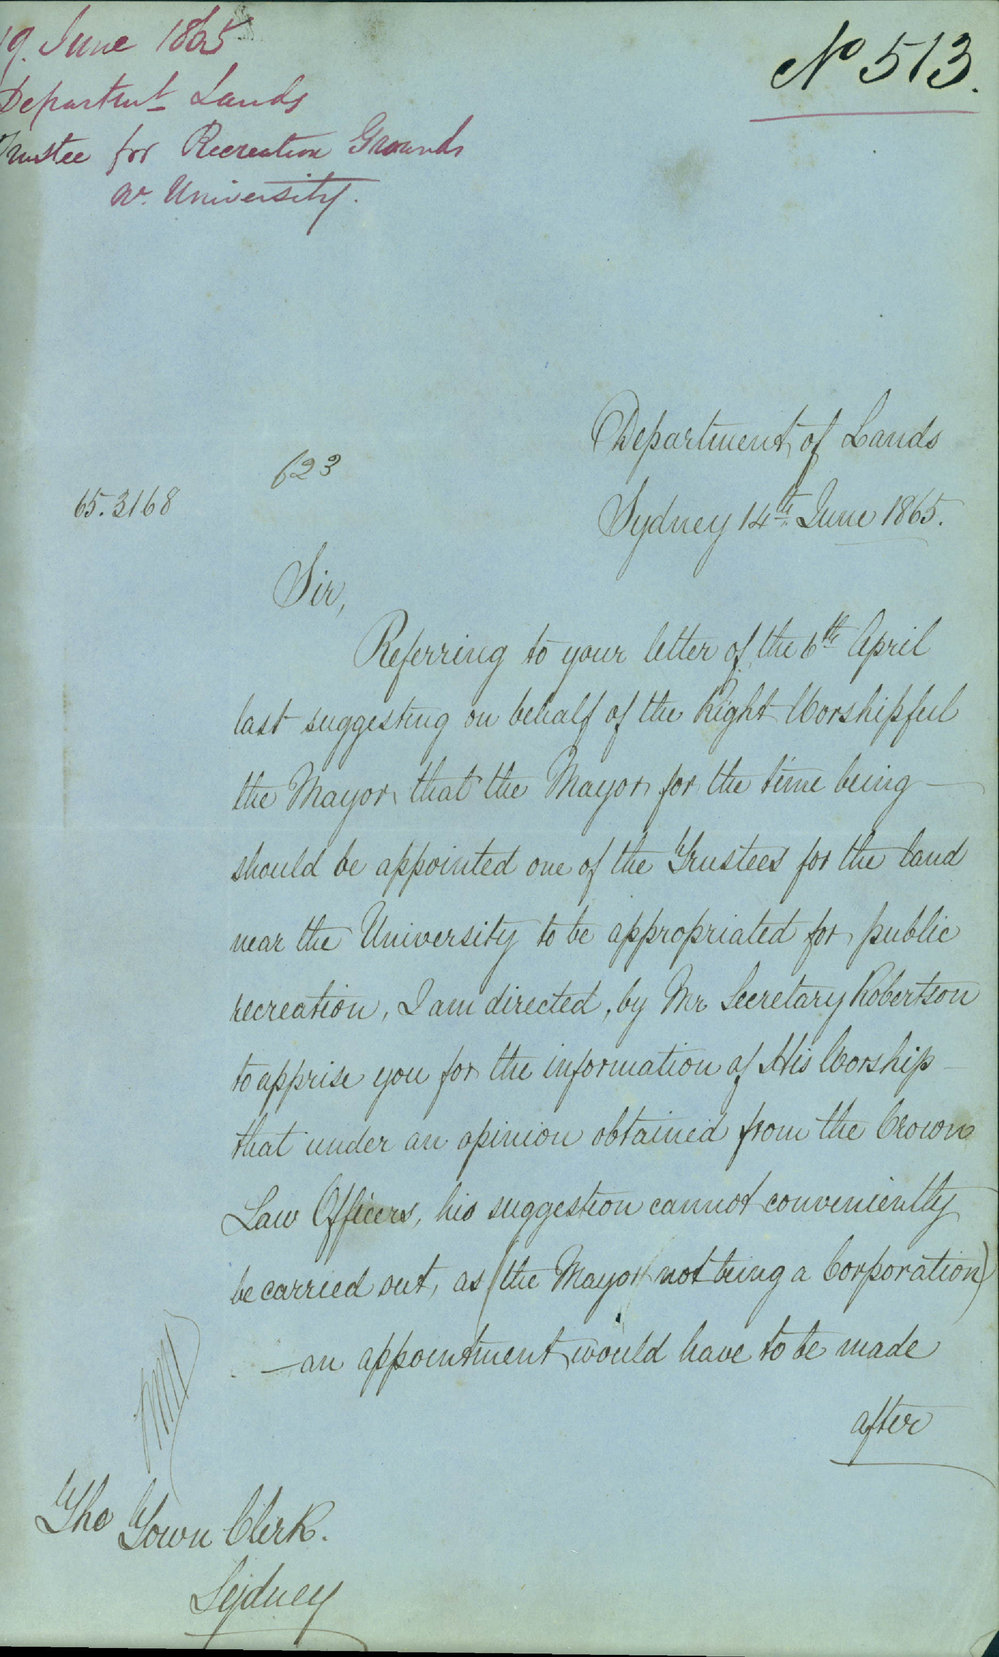 19. June 1865
Departmt Lands
Trustee for Recreation Grounds
nr. University.
No 513.
Department of Lands
Sydney 14th June 1865.
623
65.3168
Sir,
Referring to your letter of the 6th April
last suggesting on behalf of the Right Worshipful
the Mayor, that the Mayor for the time being
should be appointed one of the Trustees for the land
near the University to be appropriated for public
recreation, I am directed, by Mr Secretary Robertson
to apprise you for the information of His Worship
that under an opinion obtained from the Crown
Law Officers, his suggestion cannot conveniently
be carried out, as (the Mayor not being a Corporation)
—an appointment would have to be made
after
The Town Clerk.
Sydney